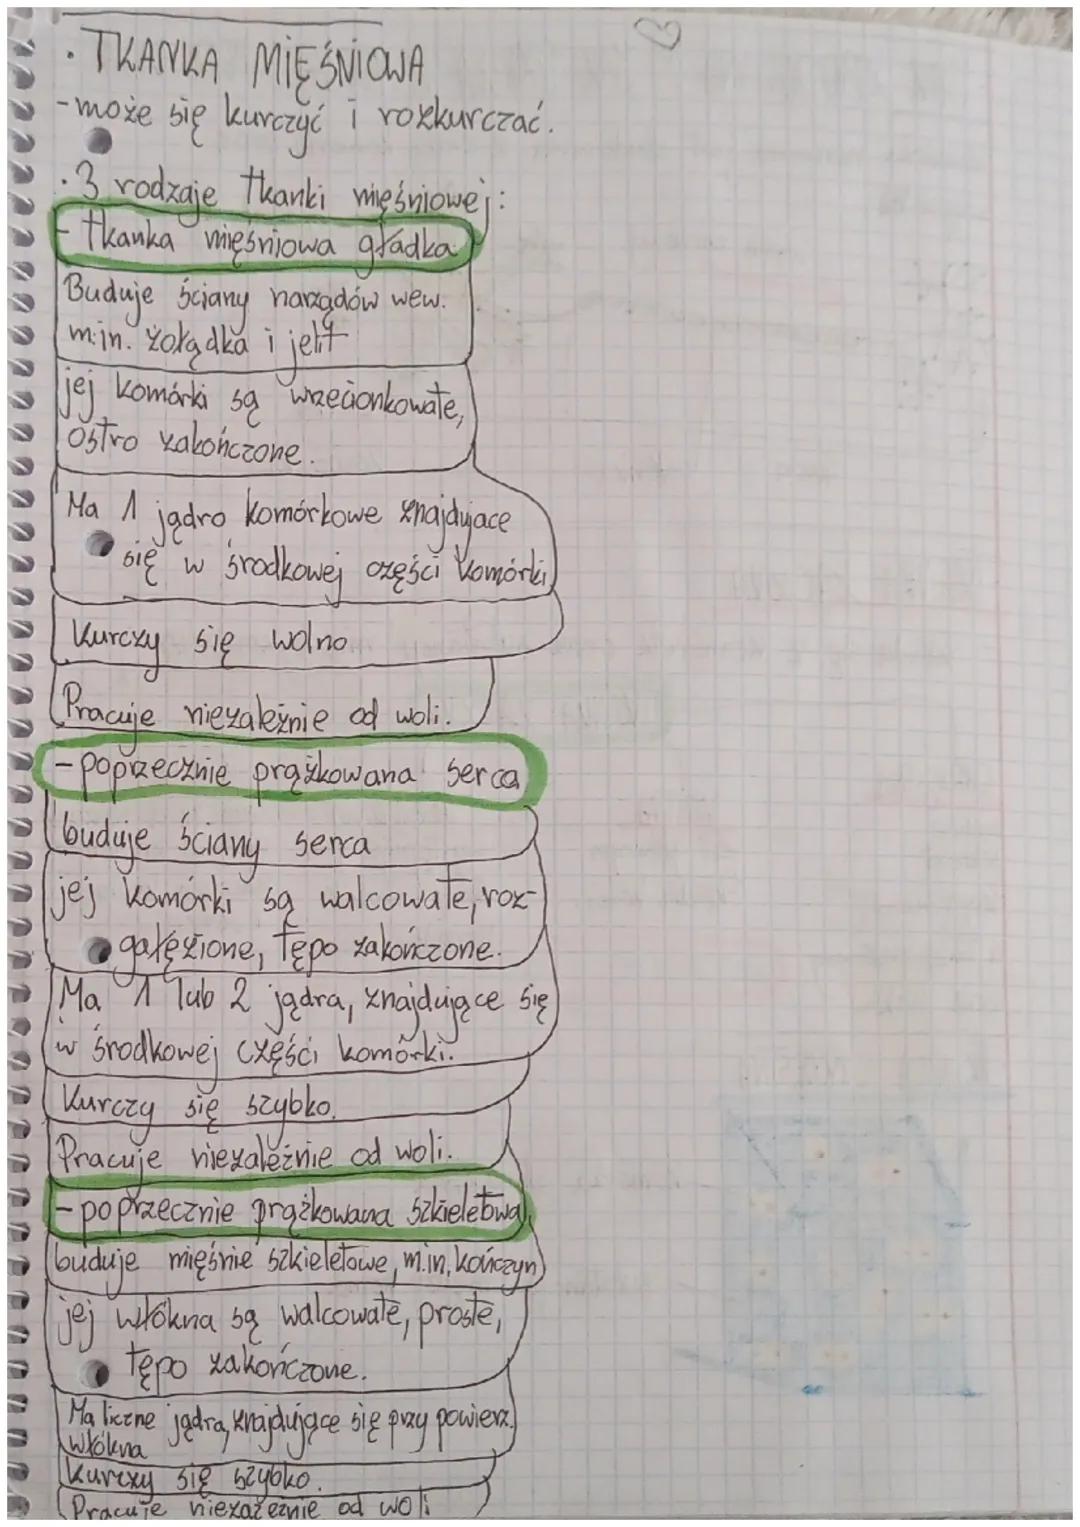 · TKANKA MIĘŚNIOWA
- może się kurczyć i rozkurczać.
· 3 rodzaje tkanki mięśniowej:
- tkanka mięśniowa gładka
Buduje ściany narządów wew.
m.in. żołądka i jelit
jej komórki są wrzecionkowate,
ostro zakończone.
Ma 1 jądro komórkowe znajdujace
się w środkowej części komórki
Kurczy się wolno.
Pracuje niezależnie od woli.
- poprzecznie prążkowana serca
buduje ściany serca
jej komórki są walcowate, roz-
gałęzione, tępo zakończone.
Ma 1 lub 2 jądra, znajdujące się
w środkowej części komórki.
Kurczy się szybko.
Pracuje niezależnie od woli.
- poprzecznie prążkowana szkieletowa
buduje mięśnie szkieletowe, m.in. kończyn
jej włókna są walcowate, proste,
tępo zakończone.
Ma liczne jądra, znajdujące się przy powierz.
włókna
Kurczy się szybko.
Pracuje niezależnie od woli